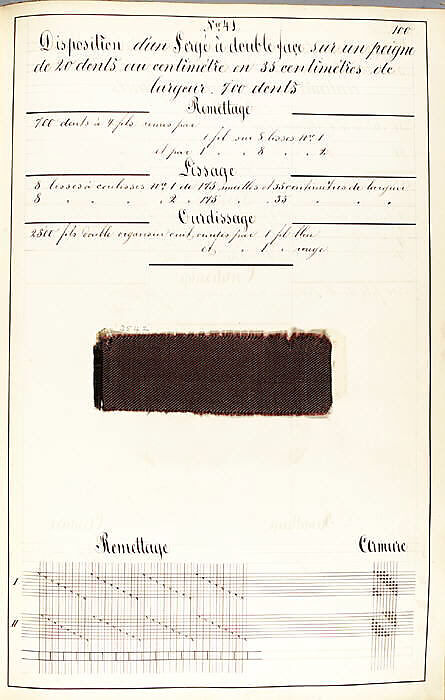 N° 41
100
Disposition d'un Sergé à double face sur un peigne
de 20 dents au centimètre en 35 centimètres de
largeur, 700 dents
Remettage
700 dents à 4 fils remis par
1 fil sur 8 lisses N° 1
et par 1 " 8 " 2
Lissage
8 lisses à coulisses N° 1 de 175 mailles et 35 centimètres de largeur
8 " " " 2 " 175 " 35 " " "
Ourdissage
2800 fils double organsin cuit, ourdis par 1 fil bleu
et " 1 " rouge
3542
Remettage
Armure
I
II